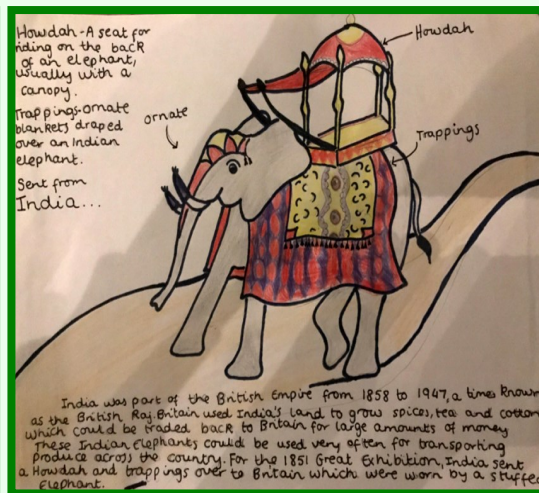 Howdah - A seat for
riding on the back
of an elephant,
usually with a
canopy.
Trappings-ornate
blankets draped
over an Indian
elephant.
Sent from
India...
ornate
Howdah
Trappings
India was part of the British Empire from 1858 to 1947, a times known
as the British Raj. Britain used India's land to grow spices, tea and cotton
which could be traded back to Britain for large amounts of money
These Indian Elephants could be used very often for transporting
produce across the country. For the 1851 Great Exhibition, India sent
a Howdah and trappings over to Britain which were worn by a stuffed
Elephant.